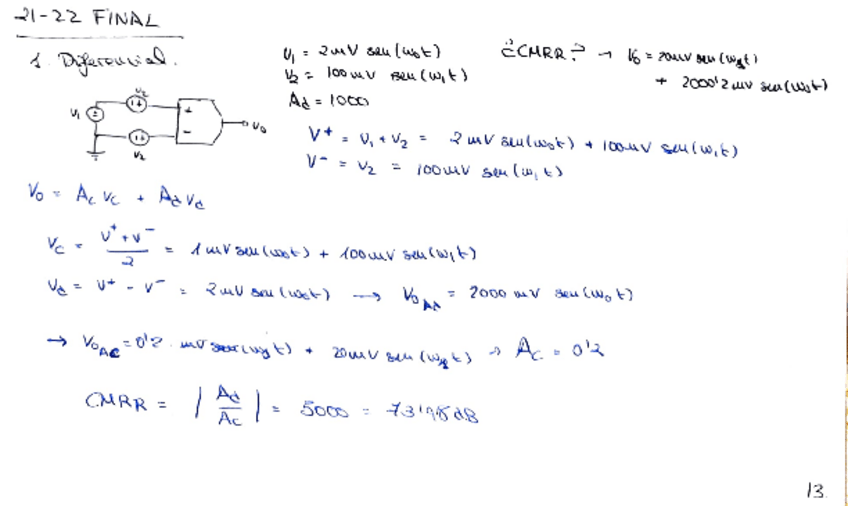 21-22 FINAL
1. Diferencial.
V₁ = 2mV sen(ω₀t)
V₂ = 100mV sen(ω₁t)
Ad = 1000
¿CMRR? → V₀ = 20mV sen(ω₁t)
+ 2000'2 mV sen(ω₀t)
V₁ V₂ V₂ + - V₀
V⁺ = V₁ + V₂ = 2mV sen(ω₀t) + 100mV sen(ω₁t)
V⁻ = V₂ = 100mV sen(ω₁t)
V₀ = Ac Vc + Ad Vd
Vc = (V⁺ + V⁻)/2 = 1mV sen(ω₀t) + 100mV sen(ω₁t)
Vd = V⁺ - V⁻ = 2mV sen(ω₀t) → V₀Ad = 2000 mV sen(ω₀t)
→ V₀Ac = 0'2 mV sen(ω₀t) + 20mV sen(ω₁t) → Ac = 0'2
CMRR = |Ad/Ac| = 5000 = 73'98dB
13